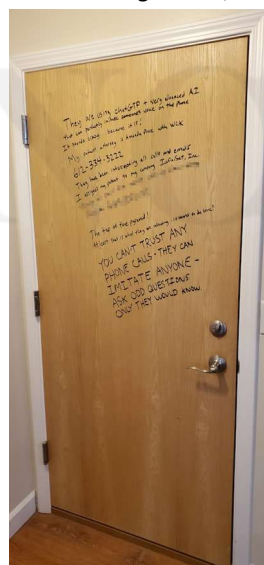 They are using chatGTP a very advanced AI
that can probably imitate someones voice on the phone
It sounds crazy because it is!
My patent attorney is Knoble Pool with WCK
612-334-3222
They have been intercepting all calls and emails
I assigned my patent to my company InfoSet, Inc.
The top of the pyramid!
At least that is what they are
YOU CAN'T TRUST ANY
PHONE CALLS. THEY CAN
IMITATE ANYONE -
ASK ODD QUESTIONS
ONLY THEY WOULD KNOW